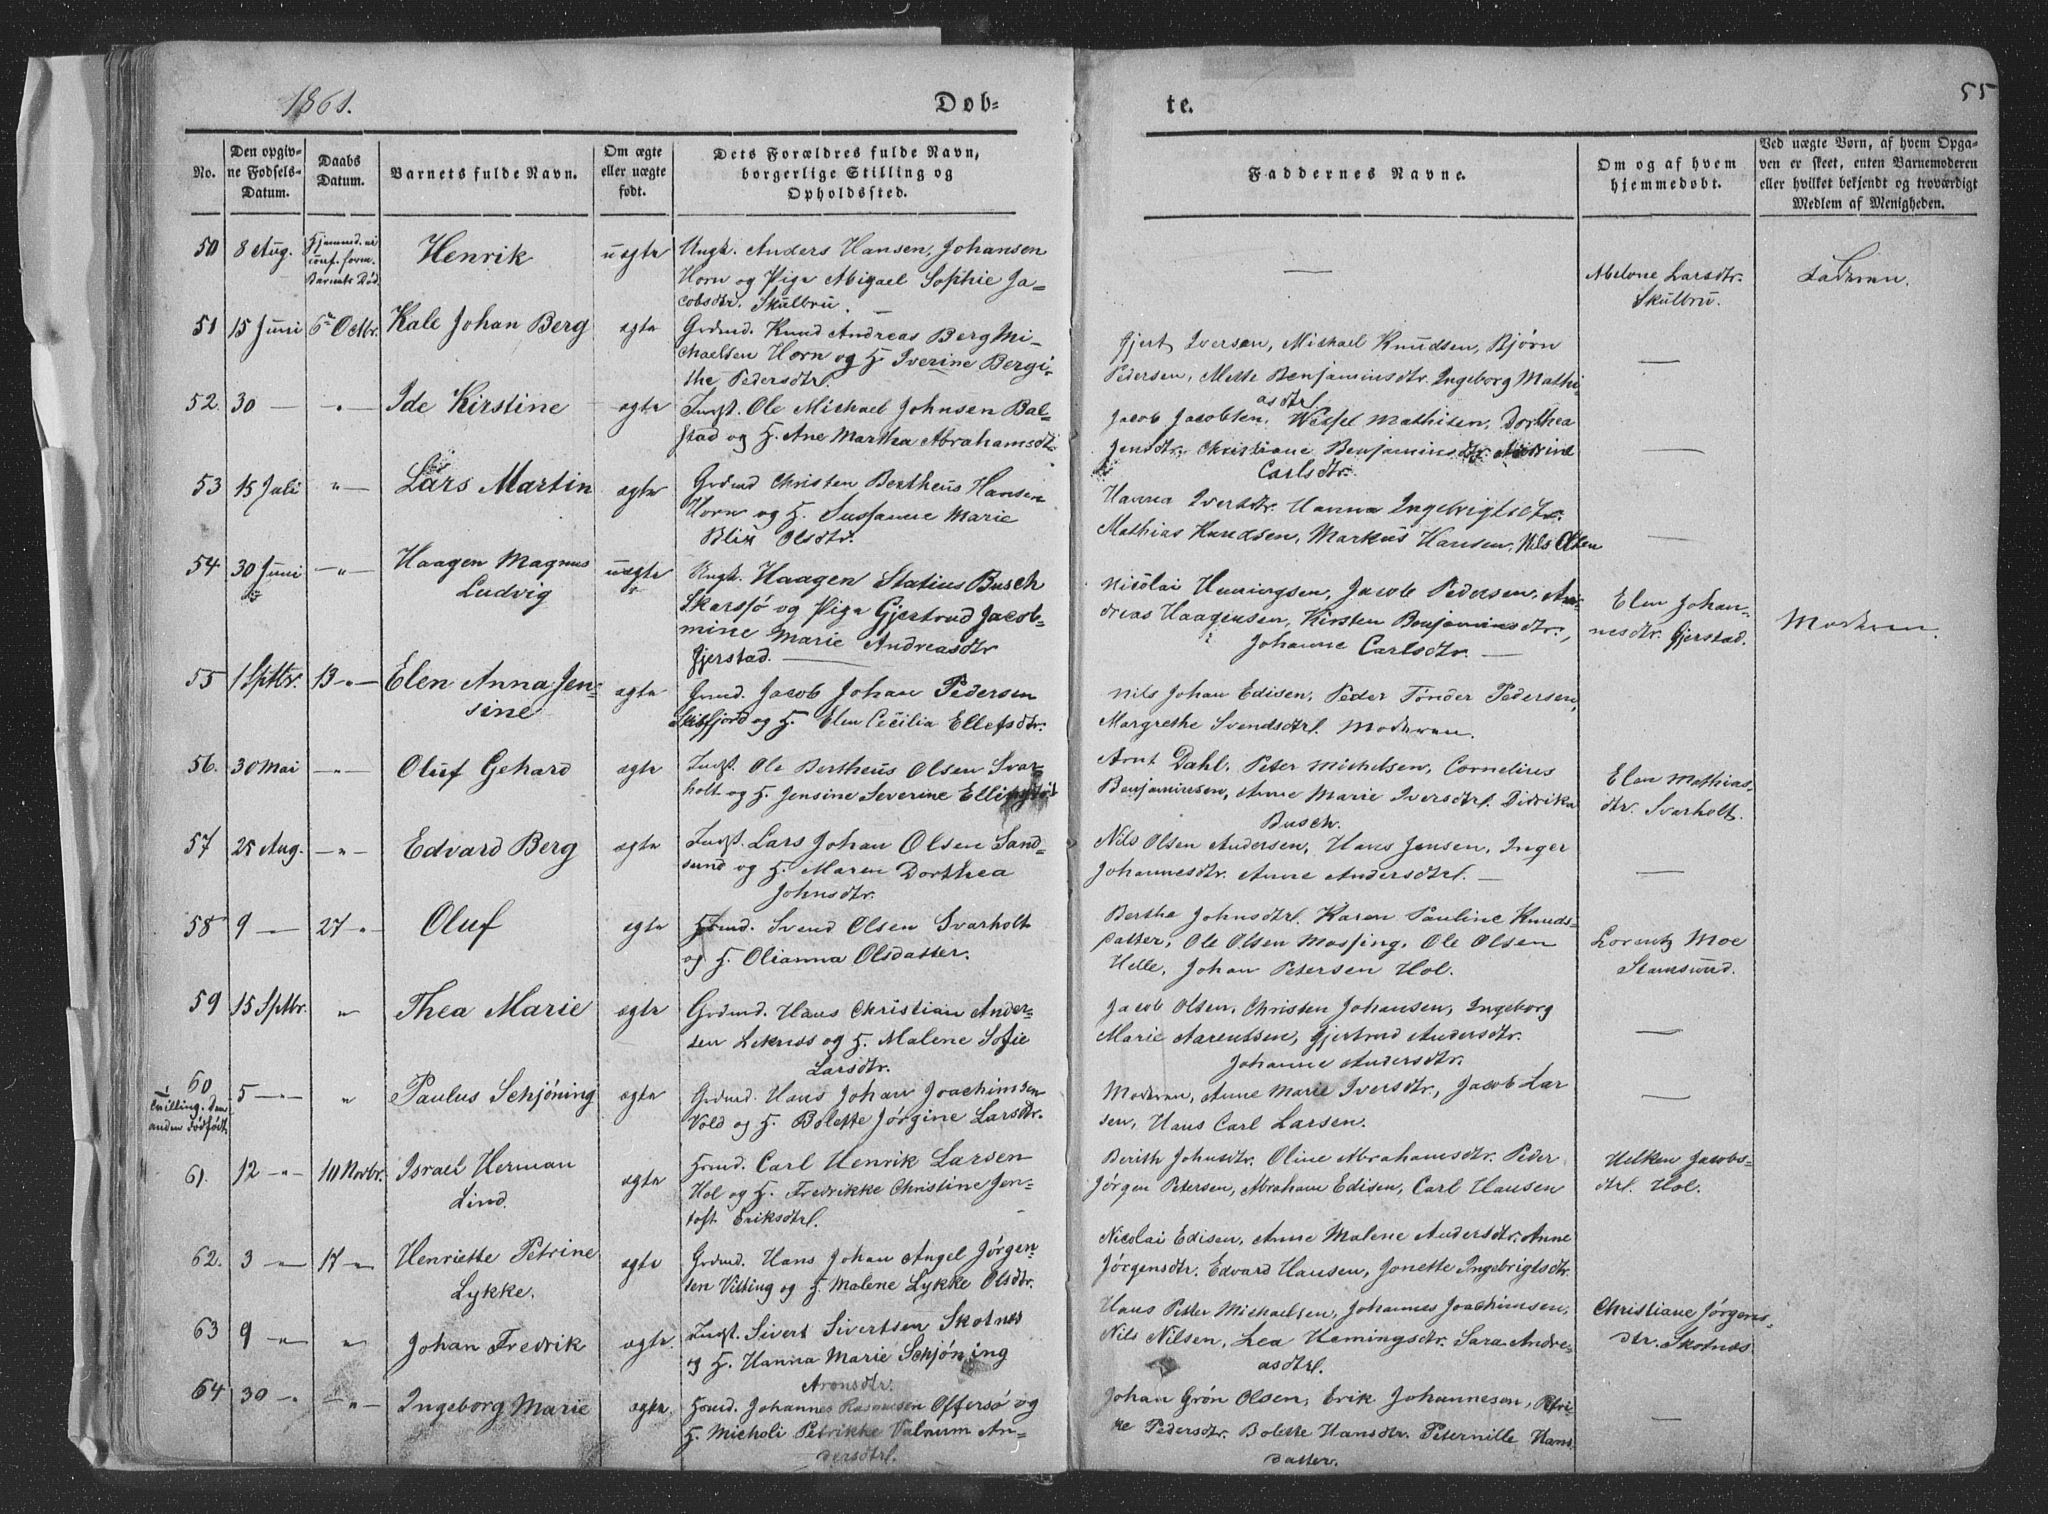 1861.
Døb-
te.
55
No.
Den opgiv-
ne Fødsels-
Datum.
Daabs
Datum.
Barnets fulde Navn.
Om ægte
eller uægte
født.
Dets Forældres fulde Navn,
borgerlige Stilling og
Opholdssted.
Faddernes Navne.
Om og af hvem
hjemmedøbt.
Ved uægte Børn, af hvem Opga-
ven er skeet, enten Barnemoderen
eller hvilket bekjendt og troværdigt
Medlem af Menigheden.
50
8 Aug.
Hjemmed. ei
conf. form.
Barnets Død.
Henrik
uægte
Ungk. Anders Hansen, Johansen
Horn og Pige Abigael Sophie Ja-
cobsdtr. Skulbru.
—
Abelone Larsdtr.
Skulbru.
Faderen.
51
15 Juni
6te Octbr.
Kale Johan Berg
ægte
Grdmd. Knud Andreas Berg Mi-
chaelsen Horn og H. Iverine Bergi-
the Pedersdtr.
Gjert Iversen, Michael Knudsen, Bjørn
Pedersen, Mette Benjaminsdtr. Ingeborg Mathi-
asdtr.
—
52.
30 —
-"-
Ide Kirstine
ægte
Indst. Ole Michael Johnsen Bal-
stad og H. Ane Martha Abrahamsdtr.
Jacob Jacobsen, Wessel Mathisen, Dorthea
Jensdtr. Christiane Benjaminsdtr.
Carlsdtr.
—
53
15 Juli
" —
Lars Martin
ægte
Grdmd Christen Bertheus Hansen
Horn og H. Susanne Marie
Blix Olsdtr.
Hanna Iversdtr. Hanna Ingebrigtsdtr.
Mathias Knudsen, Markus Hansen, Nils Olsen
—
54
30 Juni
-"-
Haagen Magnus
Ludvig
uægte
Ungk. Haagen Statius Busch
Skarsjø og Pige Gjertrud Jacob-
mine Marie Andreasdtr
Gjerstad. —
Nicolai Hemingsen, Jacob Pedersen, An-
dreas Haagensen, Kirsten Benjaminsdtr.,
Johanne Carlsdtr. —
Elen Johan-
nesdtr. Gjerstad.
Moderen.
55
1 Sptbr.
13 -"-
Elen Anna Jen-
sine
ægte
Grmd. Jacob Johan Pedersen
Skifjord og H. Elen Cecilia Ellefsdtr.
Nils Johan Edisen, Peder Tønder Pedersen,
Margrethe Svendsdtr. Moderen.
56.
30 Mai
-"-
Oluf Gehard
ægte
Indst. Ole Bertheus Olsen Svar-
holt og H. Jensine Severine Ellingsdtr
Arnt Dahl, Peter Michelsen, Cornelius
Benjaminsen, Anne Marie Iversdtr. Didrika
Busch.
Elen Mathias-
dtr. Svarholt.
57
25 Aug.
-"-
Edvard Berg
ægte
Indst. Lars Johan Olsen Sand-
sund og H. Maren Dorthea
Johnsdtr.
Nils Olsen Andersen, Hans Jensen, Inger
Johannesdtr. Anne Andersdtr. —
—
58
9 —
27 "
Oluf
ægte
Hmd. Svend Olsen Svarholt
og H. Olianna Olsdatter.
Berthe Johnsdtr. Karen Pauline Knuds-
datter, Ole Olsen Mossing, Ole Olsen
Helle, Johan Petersen Hol.
Lorentz Moe
Stamsund.
59
15 Sptbr.
"
Thea Marie
ægte
Grdmd. Hans Christian Ander-
sen Leknæs og H. Malene Sofie
Larsdtr.
Jacob Olsen, Christen Johansen, Ingeborg
Marie Aarentsen, Gjertrud Andersdtr.
Johanne Andersdtr.
—
60
1
Tvilling. Den
anden Dødfødt.
5 -"-
"
Paulus Schjøning
ægte
Grdmd. Hans Johan Joachimsen
Vold og H. Bolette Jørgine Larsdtr.
Moderen, Anne Marie Iversdtr., Jacob Lar-
sen, Hans Carl Larsen.
—
61.
12 -"-
10 Novbr.
Israel Herman
Lind.
ægte
Hmd. Carl Henrik Larsen
Hol og H. Fredrikke Christine Jen-
toft Eriksdtr.
Berith Johnsdtr. Oline Abrahamsdtr. Peder
Jørgen Petersen, Abraham Edisen, Carl Hansen
Helken Jacobs-
dtr. Hol.
62.
3 -"-
17 -"-
Henriette Petrine
Lykke.
ægte
Grdmd. Hans Johan Angel Jørgen-
sen Vitting og H. Malene Lykke Olsdtr.
Nicolai Edisen, Anne Malene Andersdtr. Anne
Jørgensdtr. Edvard Hansen, Jonette Ingebrigtsdtr.
63
9 "
"
Johan Fredrik
ægte.
Indst. Sivert Sivertsen Skotnes
og H. Hanna Marie Schjøning
Aronsdtr.
Hans Petter Michaelsen, Johannes Joachimsen,
Nils Nilsen, Lea Hemingsdtr. Sara Andre-
asdtr.
Christiane Jørgens-
dtr. Skotnæs
64
30 "
-"-
Ingeborg Marie
ægte.
Hmd. Johannes Rasmusen Offersø og
H. Micholi Petrikke Valnum An-
dersdtr.
Johan Grøn Olsen, Erik Johannesen, Petri-
ke Pedersdtr. Bolette Hansdtr. Peternille Hans
datter.
—